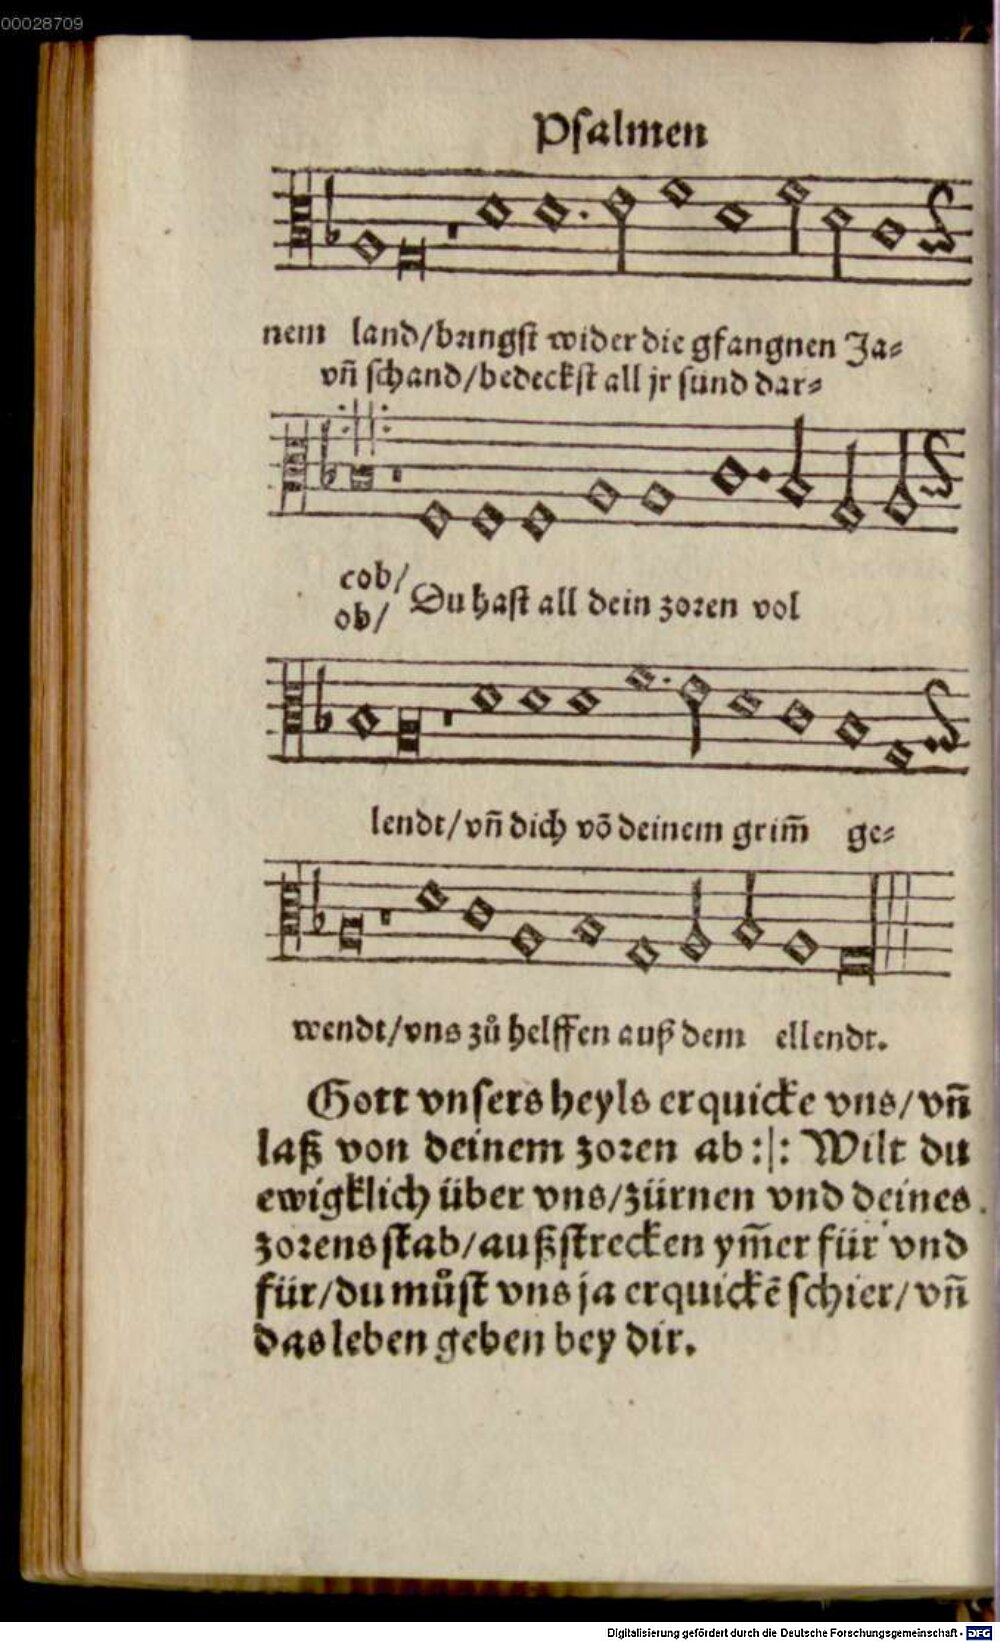 00028709
Psalmen
nem land/bringst wider die gfangnen Ja⸗
vn̄ schand/bedeckst all jr sünd dar⸗
cob/
ob/ Du hast all dein zoren vol
lendt/vn̄ dich vō deinem grim̄ ge⸗
wendt/vns zů helffen auß dem ellendt.
Gott vnsers heyls erquicke vns/vn̄
laß von deinem zoren ab :|: Wilt du
ewigklich über vns/zürnen vnd deines
zorens stab/außstrecken ym̄er für vnd
für/du můst vns ja erquickē schier/vn̄
das leben geben bey dir.
Digitalisierung gefördert durch die Deutsche Forschungsgemeinschaft - DFG